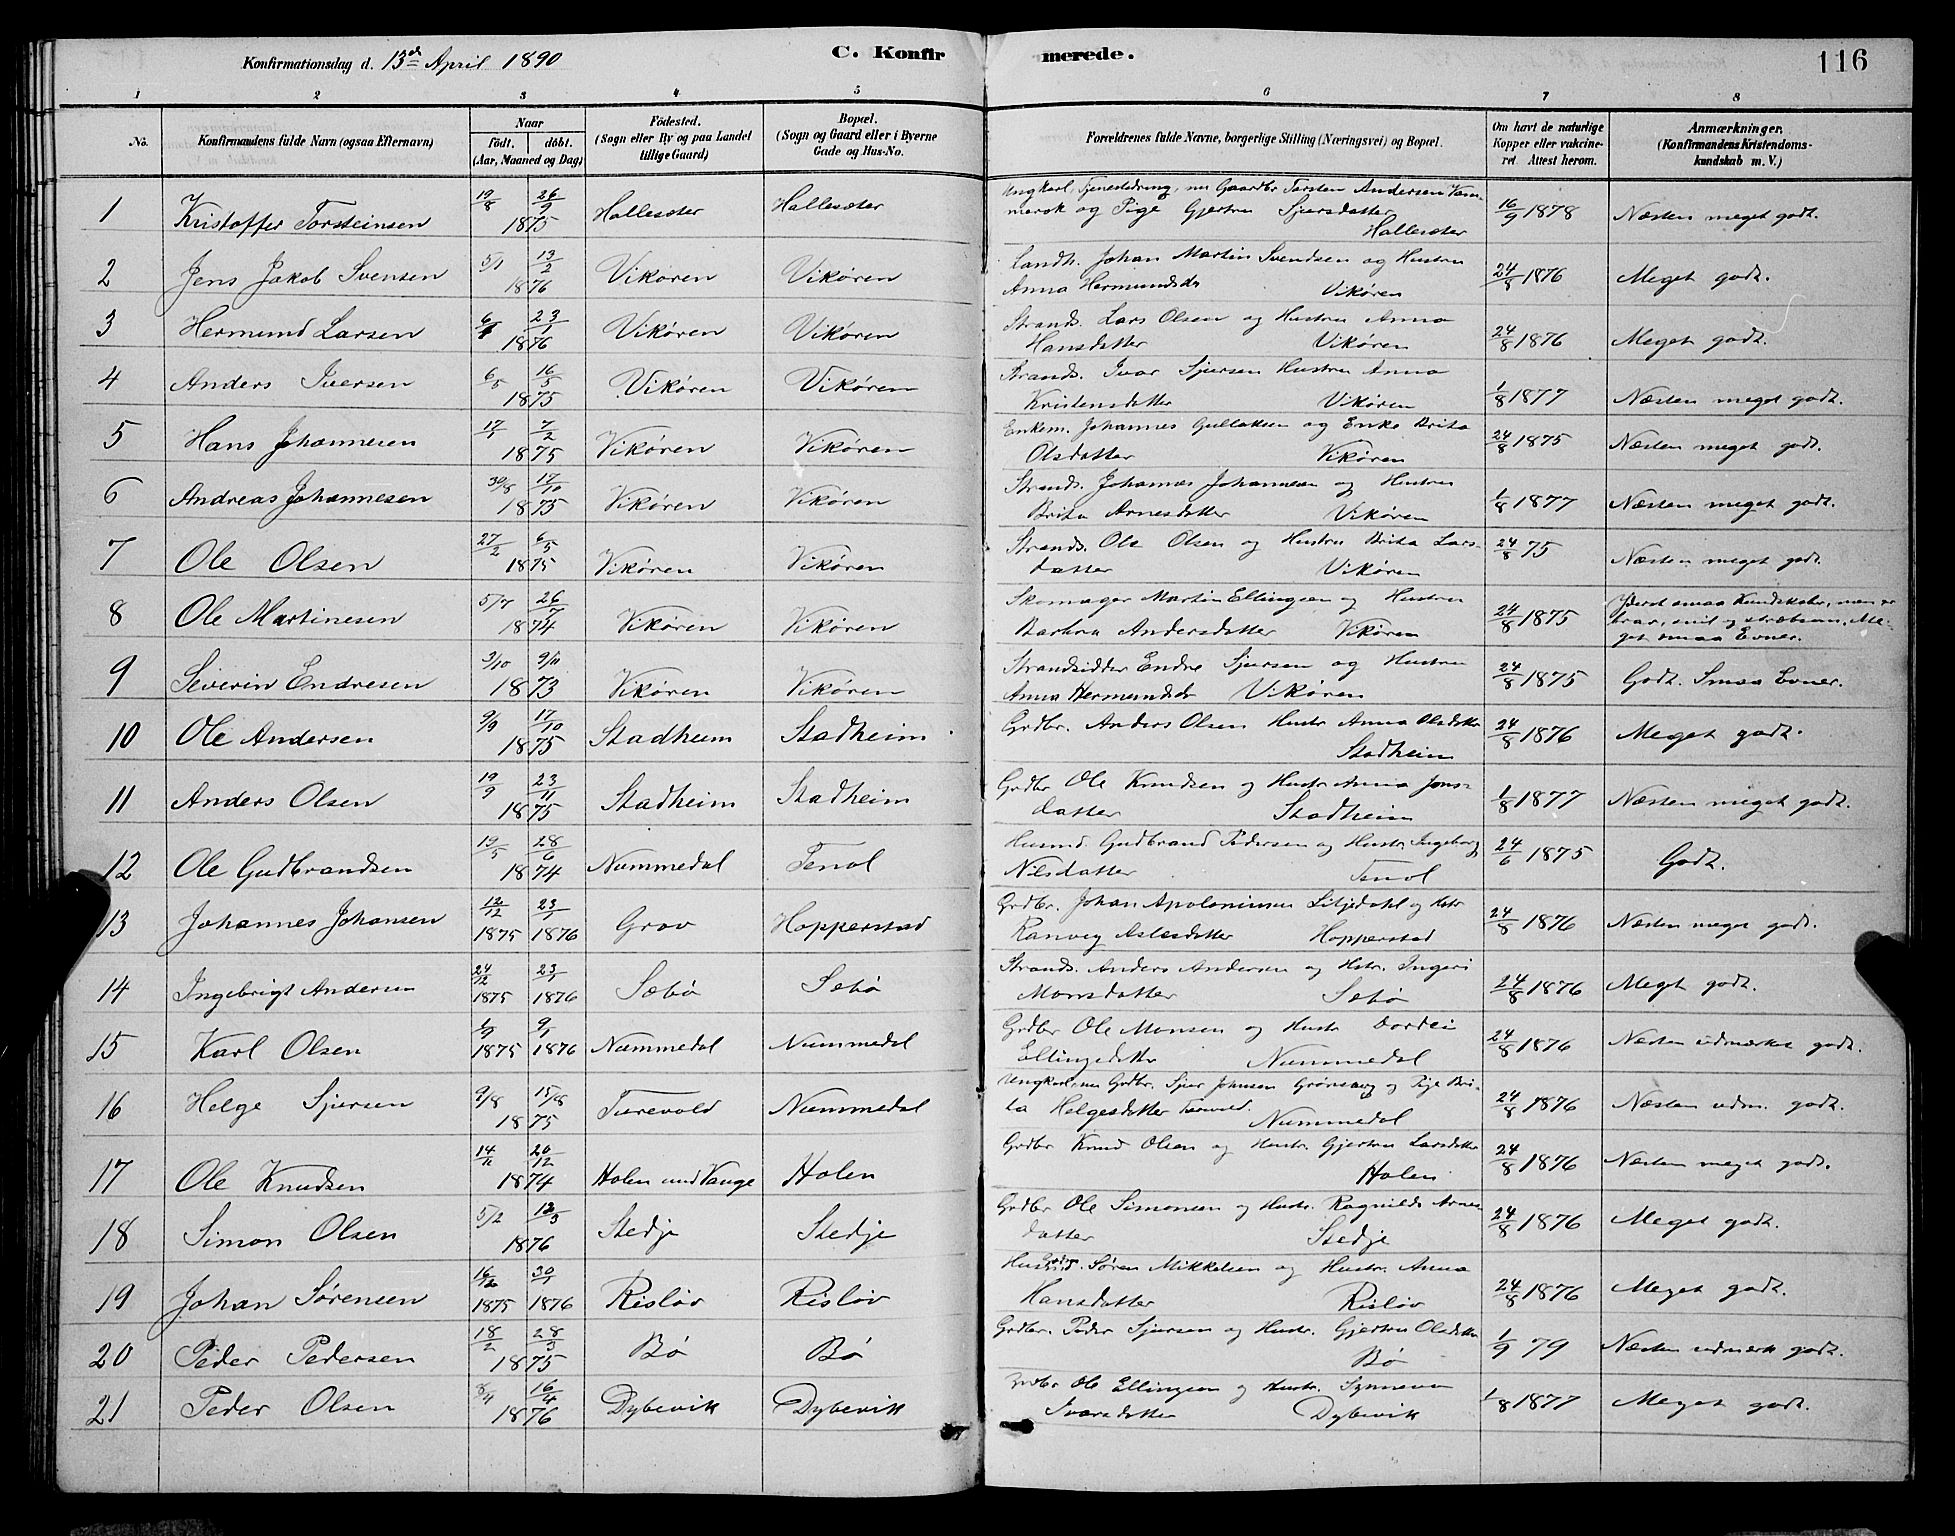 Konfirmationsdag d. 13de April 1890 C. Konfirmerede. 116
1 2 3 4 5 6 7 8
No. Konfirmandens fulde Navn (ogsaa Efternavn) Naar født. døbt. (Aar, Maaned og Dag) Fødested. (Sogn eller By og paa Landet tillige Gaard) Bopæl. (Sogn og Gaard eller i Byerne Gade og Hus-No. Forældrenes fulde Navne, borgerlige Stilling (Næringsvei) og Bopæl. Om havt de naturlige Kopper eller vakcineret. Attest herom. Anmærkninger. (Konfirmandens Kristendomskundskab m. V.)
1 Kristoffer Torsteinsen 19/8 26/9 1875 Hallesæter Hallesæter Ungkarl, Tjenestedreng, nu Gaardbr Torsten Andersen og Pige Gjertru Sjursdatter Hallesæter 16/9 1878 Næsten meget godt.
2 Jens Jakob Svensen 5/1 13/2 1876 Vikøren Vikøren Landh. Johan Martin Svendsen og Hustru Anna Hermundsdr Vikøren 24/8 1876 Meget godt.
3 Hermund Larsen 6/1 23/1 1876 Vikøren Vikøren Strands. Lars Olsen og Hustru Anna Hansdatter Vikøren 24/8 1876 Meget godt.
4 Anders Iversen 6/5 16/5 1875 Vikøren Vikøren Strands. Ivar Sjursen Hustru Anna Kristensdatter Vikøren 1/8 1877 Næsten meget godt.
5 Hans Johannesen 17/1 7/2 1875 Vikøren Vikøren Enkem. Johannes Gullaksen og Enke Brita Olsdatter Vikøren 24/8 1875 Næsten meget godt.
6 Andreas Johannesen 30/8 17/10 1875 Vikøren Vikøren Strands. Johannes Johannesen og Hustru Brita Arnesdatter Vikøren 1/8 1877 Næsten meget godt.
7 Ole Olsen 27/2 6/5 1875 Vikøren Vikøren Strands. Ole Olsen og Hustru Brita Larsdatter Vikøren 24/8 75 Næsten meget godt.
8 Ole Martinesen 5/7 26/7 1874 Vikøren Vikøren Skomager Martin Ellingsen og Hustru Barbra Andersdatter Vikøren 24/8 1875 Yderst smaa Kundskaber, men er brav, snil og stræbsom. Meget smaa Evner.
9 Severin Endresen 3/10 9/11 1873 Vikøren Vikøren Strandsidder Endre Sjursen og Hustru Anna Hermundsdr Vikøren 24/8 1875 Godt. Smaa Evner.
10 Ole Andersen 9/9 17/10 1875 Stadheim Stadheim Grdbr. Anders Olsen Hustr. Anna Olsdatter Stadheim 24/8 1876 Meget godt.
11 Anders Olsen 19/9 23/11 1875 Stadheim Stadheim Grdbr Ole Knudsen og Hustr Anna Jonsdatter Stadheim 1/8 1877 Næsten meget godt.
12 Ole Gudbrandsen 19/5 28/6 1874 Nummedal Tenol Husmd. Gudbrand Pedersen og Hustr. Ingeborg Nilsdatter Tenol 24/6 1875 Godt.
13 Johannes Johansen 12/12 1875 23/1 1876 Grov Hopperstad Grdbr. Johan Apoloniusen Liljedahl og Hstr Ranveig Aslesdatter Hopperstad 24/8 1876 Næsten meget godt.
14 Ingebrigt Andersen 24/12 1875 23/1 1876 Sæbø Sebø Strands. Anders Andersen og Hstr. Ingeri Monsdatter Sebø 24/8 1876 Meget godt.
15 Karl Olsen 1/9 1875 9/1 1876 Nummedal Nummedal Grdbr Ole Monsen og Hustr Dordei Ellingsdttr Nummedal 24/8 1876 Næsten udmærket godt.
16 Helge Sjursen 9/8 15/8 1875 Turevold Nummedal Ungkarl, nu Grdbr. Sjur Johnsen og Pige Brita Helgesdatter Nummedal 24/8 1876 Næsten udm. godt.
17 Ole Knudsen 14/11 20/12 1874 Holen und Vange Holen Grdbr Knud Olsen og Hustr. Gjertru Larsdatter Holen 24/8 1876 Næsten meget godt.
18 Simon Olsen 5/2 12/3 1876 Stedje Stedje Grdbr Ole Simonsen og Hustr. Ragnilda Arnesdatter Stedje 24/8 1876 Meget godt.
19 Johan Sørensen 16/12 1875 30/1 1876 Risløv Risløv Søren Mikkelsen og Hustr. Anna Hansdatter Risløv 24/8 1876 Meget godt.
20 Peder Pedersen 18/2 28/3 1875 Bø Bø Grdbr. Peder Sjursen og Hustr. Gjertru Olsdatter Bø 1/9 79 Næsten udmærk godt.
21 Peder Olsen 8/4 16/4 1876 Dybevik Dybevik Grdbr Ole Ellingsen og Hustr. Synneva Ivarsdatter Dybevik 1/8 1877 Meget godt.